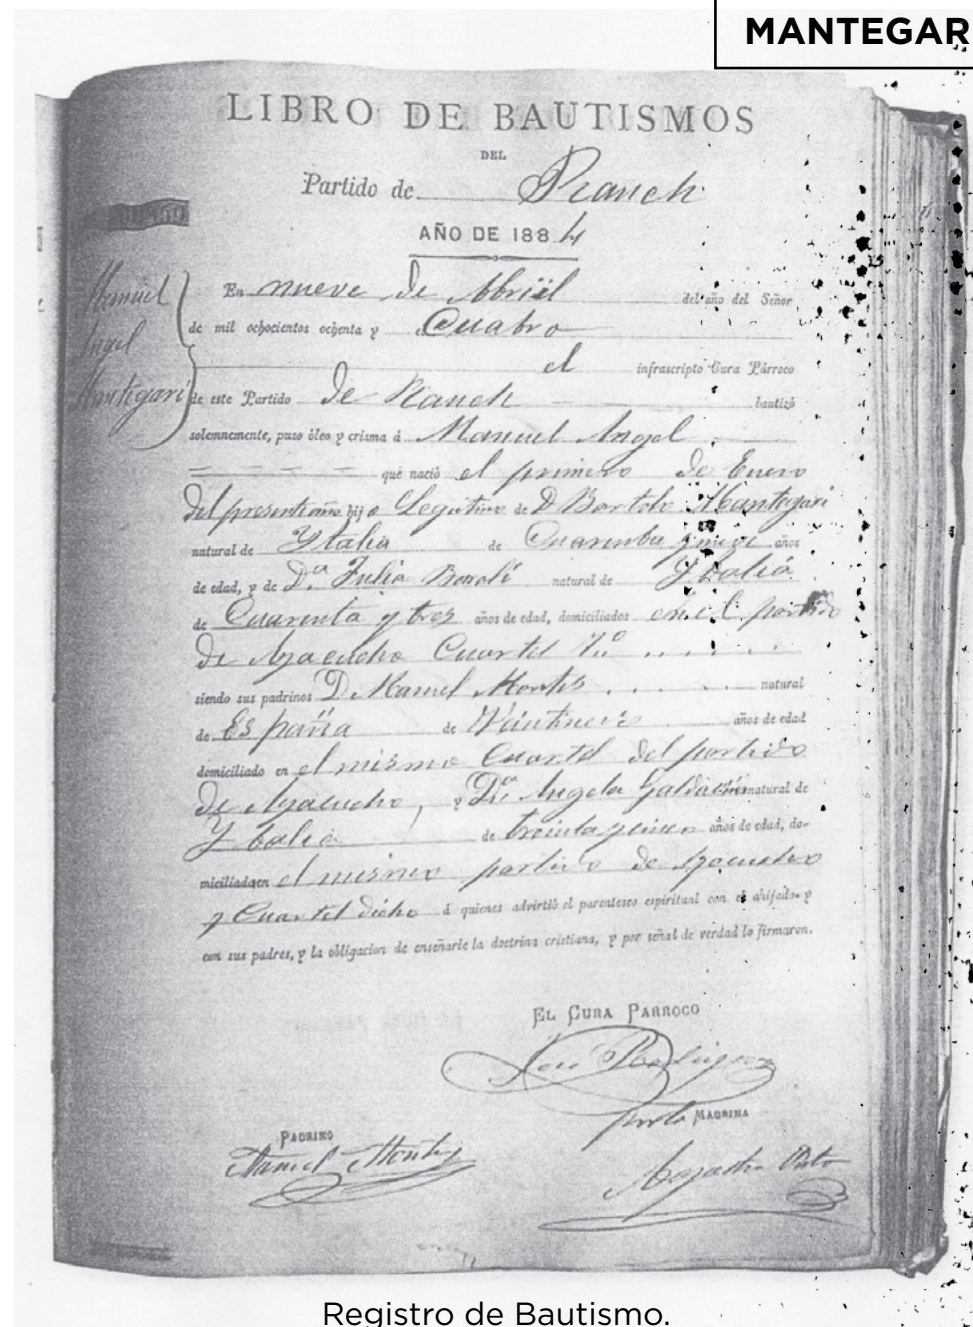 MANTEGAR
LIBRO DE BAUTISMOS
DEL
Partido de Rauch
AÑO DE 1884
Manuel
Angel
Mantegari
En nueve de Abril del año del Señor
de mil ochocientos ochenta y Cuatro
el infrascripto Cura Párroco
de este Partido de Rauch bautizó
solemnemente, puso óleo y crisma á Manuel Angel
que nació el primero de Enero
del presente año hijo Legitimo de D Bortolo Mantegari
natural de Ytalia de Cuarenta y nueve años
de edad, y de Dª Julia natural de Ytalia
de Cuarenta y tres años de edad, domiciliados en el partido
de Ayacucho Cuartel 7º
siendo sus padrinos D. Manuel Montes natural
de España de Veintinueve años de edad
domiciliado en el mismo Cuartel del partido
de Ayacucho, y Dª Angela natural de
Ytalia de treinta y años de edad, do-
miciliada en el mismo partido de Ayacucho
y Cuartel dicho á quienes advirtió el parentesco espiritual con el ahijado y
con sus padres, y la obligacion de enseñarle la doctrina cristiana, y por señal de verdad lo firmaron.
EL CURA PARROCO
José Rodriguez
por la MADRINA
PADRINO
Manuel Montes
Registro de Bautismo.